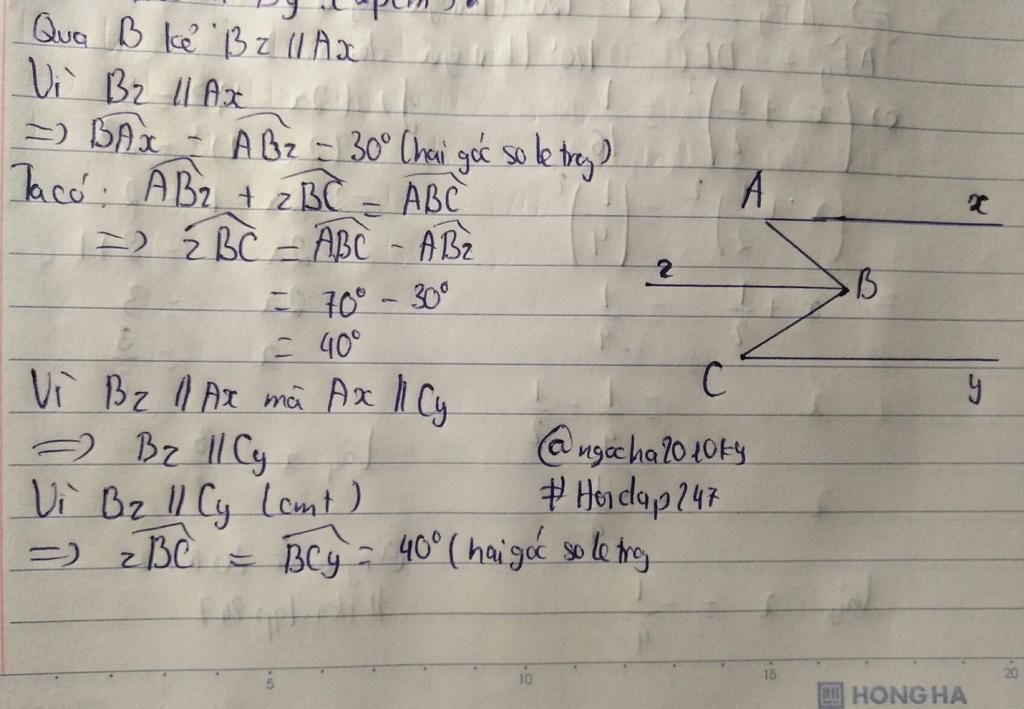 By
Qua B kẻ Bz // Ax
Vì Bz // Ax
=> BAx = ABz = 30° (hai góc so le trg)
Ta có: ABz + zBC = ABC
=> zBC = ABC - ABz
= 70° - 30°
= 40°
Vì Bz // Ax mà Ax // Cy
=> Bz // Cy
Vì Bz // Cy (cmt)
=> zBC = BCy = 40° (hai góc so le trg
A x
z B
C y
@ngocha2010ky
#Hoidap247
5 10 15 20
HONG HA